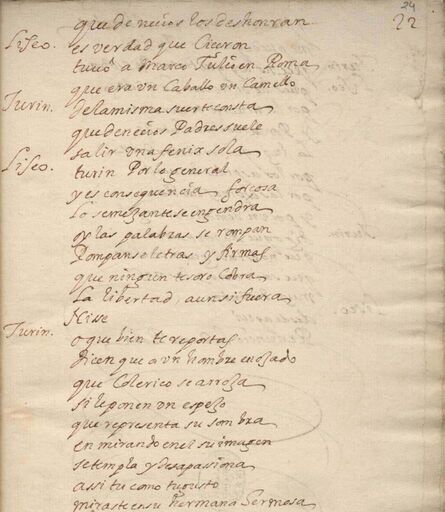 24
22
que de neçios los deshonran
Liseo. es verdad que Ciceron
tuuo a Marco Tulio en Roma
que era un Caballo un Camello
Turin. de la misma suerte consta
que de neçios Padres suele
salir una fenix sola
Liseo. turin Por lo general
y es consequencia forçosa
lo semejante se engendra
oy las palabras se rompan
Rompanse letras y firmas
que ningun tesoro Cobra
La libertad aunsi fuera
Nisse
Turin. o que bien te reportas
Dicen que a un hombre enojado
que Colerico se arroja
si le ponen un espejo
que representa su sombra
en mirando en el su imagen
se templa y desapasiona
assi tu como tu gusto
miraste en su hermana hermosa